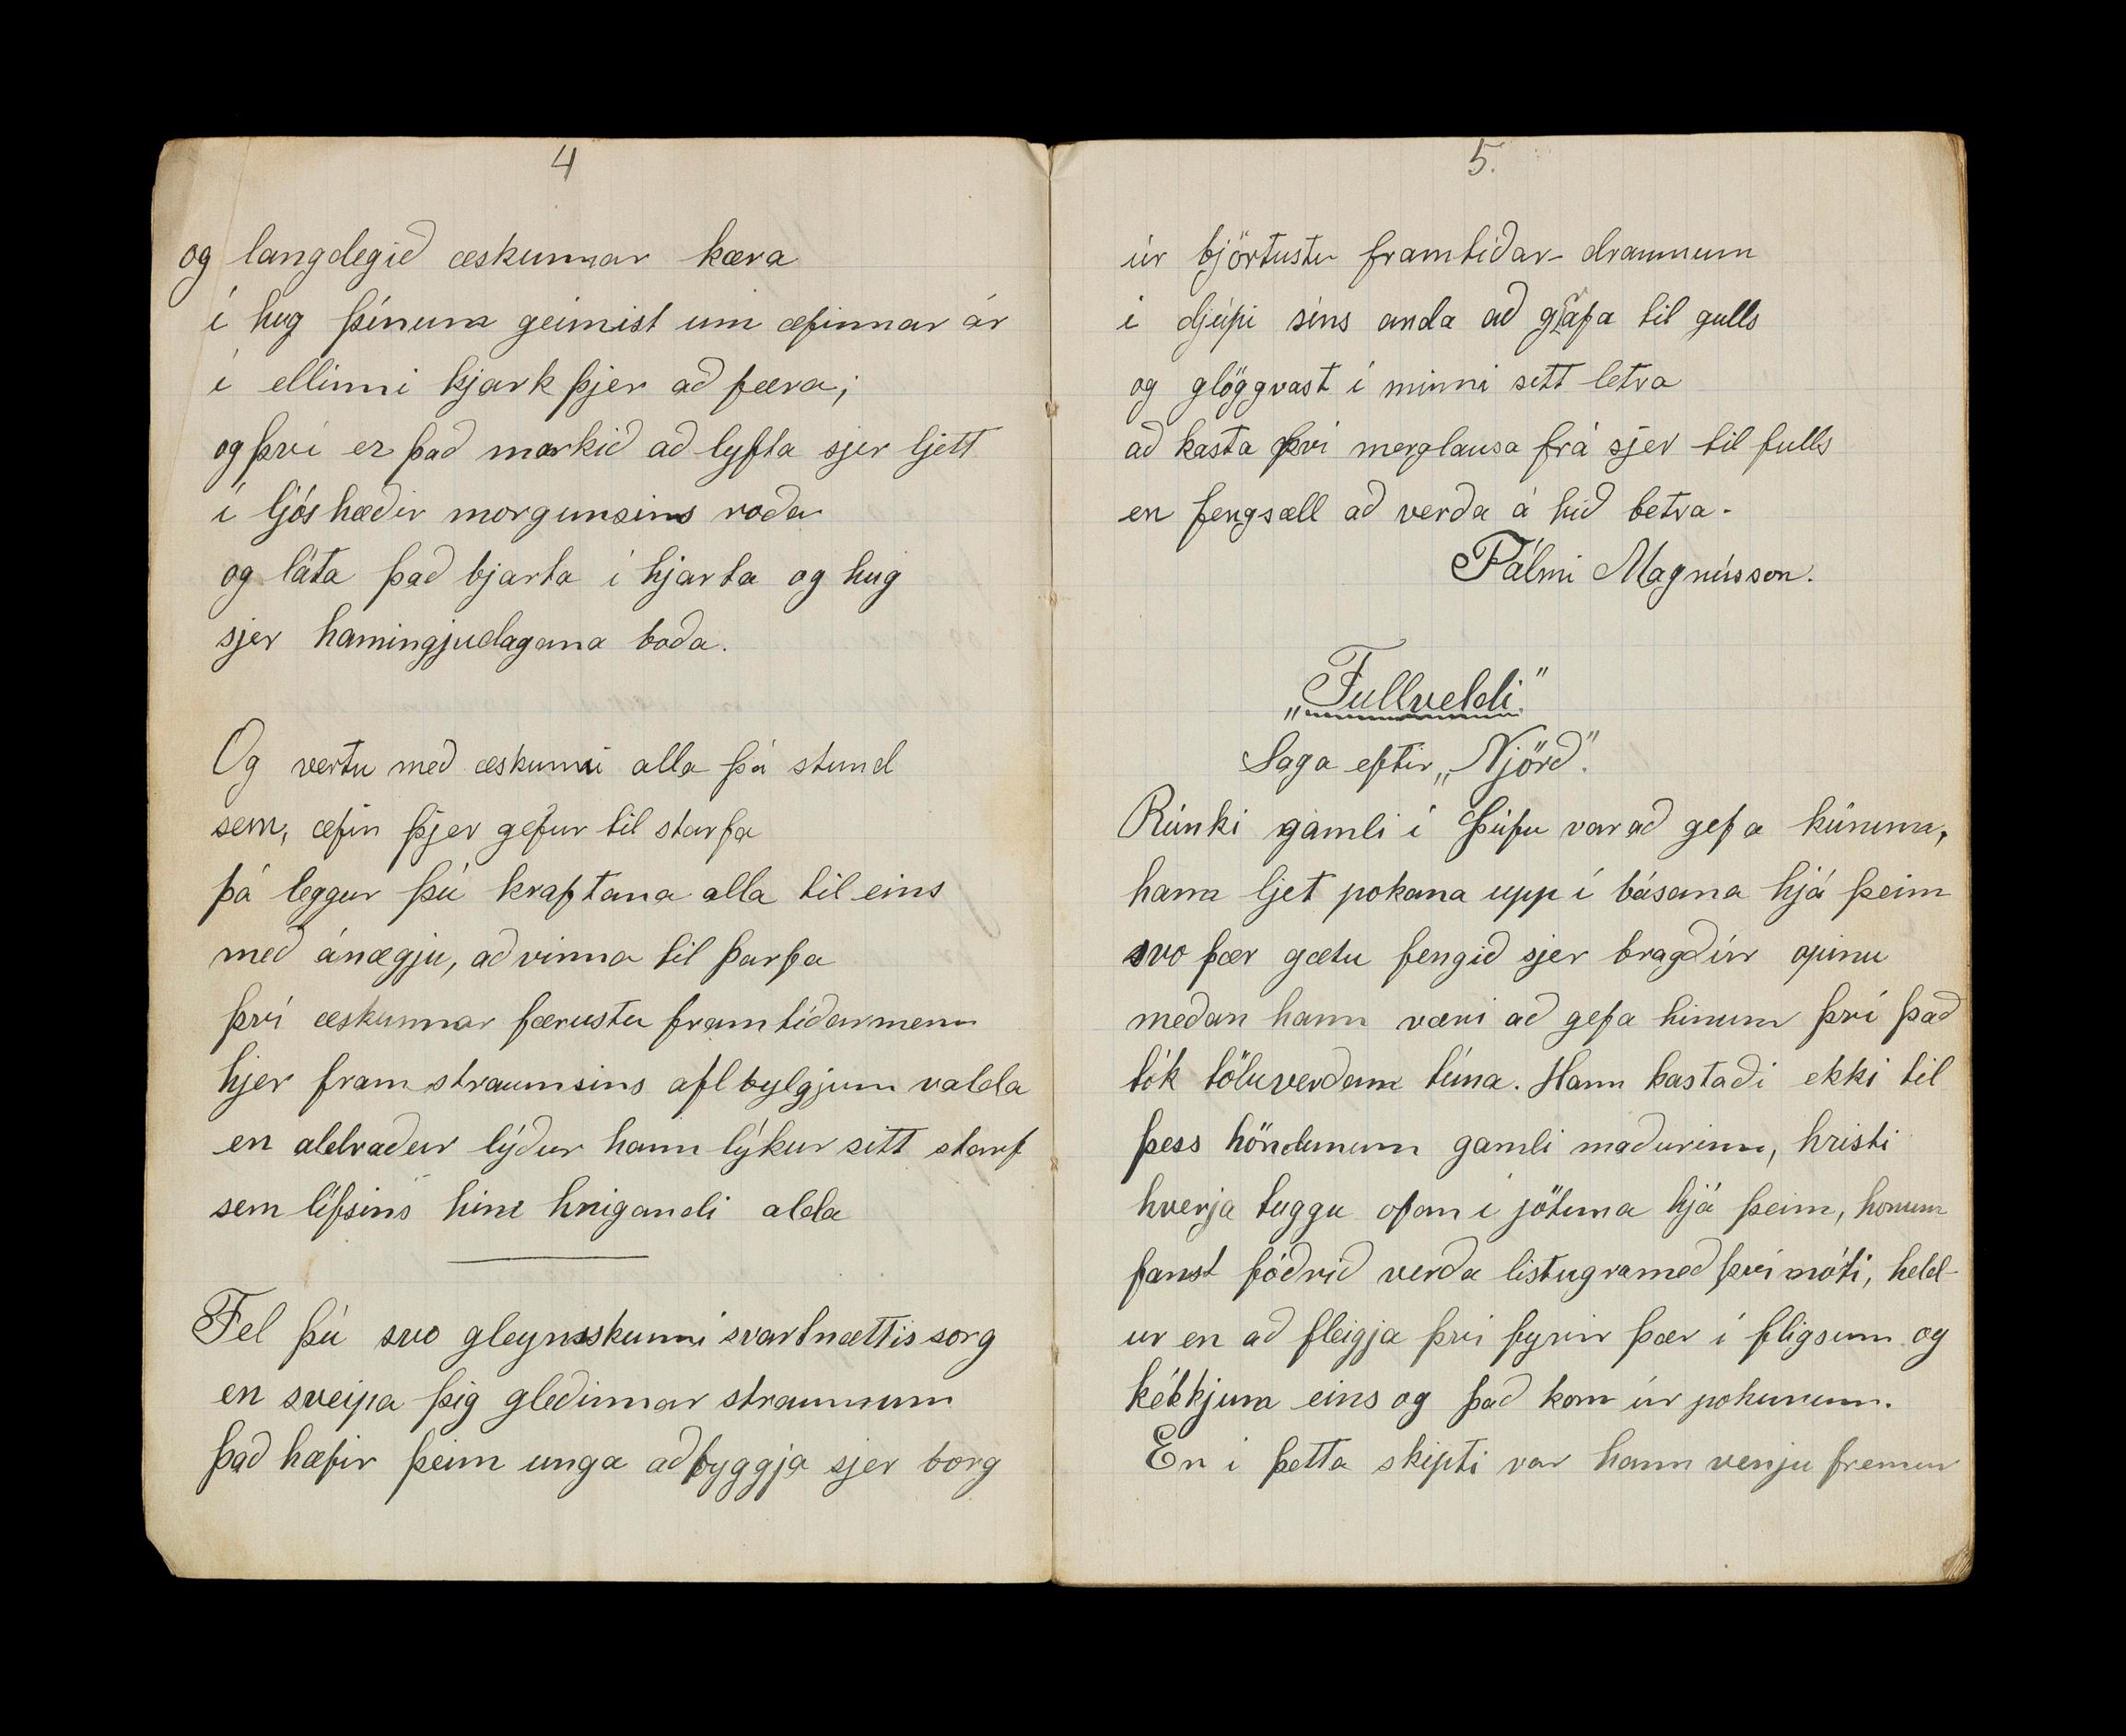 4
og langdegið æskunnar kæra
í hug þínum geimist um æfinnar ár
í ellinni kjark þjer að færa;
og því er það markið að lyfta sjer ljett
í ljóshæðir morgunsins roða
og láta það bjarta í hjarta og hug
sjer hamingjudagana boða.
Og vertu með æskunni alla þá stund
sem, æfin þjer gefur til starfa
þá leggur þú kraftana alla til eins
með ánægju, að vinna til þarfa
því æskunnar færustu framtíðarmenn
hjer fram straumsins aflbylgjum valda
en aldraður lýður hann lýkur sitt starf
sem lífsins hine hnigandi alda
Fel þú svo gleymskunni svartnættis sorg
en sveipa þig gleðinnar straumum
það hæfir þeim unga að byggja sjer borg
5.
úr björtustu framtíðar-draumum
í djúpi síns anda að grafa til gulls
og glöggvast í minni sitt letra
að kasta því merglausa frá sjer til fulls
en fengsæll að verða á hið betra.
Pálmi Magnússon.
„Fullveldi."
Saga eftir „Njörð".
Rúnki gamli í Þúfu var að gefa kúnum,
hann ljet pokana upp í básana hjá þeim
svo þær gætu fengið sjer bragð úr opinu
meðan hann væri að gefa hinum því það
tók töluverðann tíma. Hann kastaði ekki til
þess höndunum gamli maðurinn, hristi
hverja tuggu ofan í jötuna hjá þeim, honum
fanst fóðrið verða listugra með því móti, held-
ur en að fleigja því fyrir þær í fligsum og
kékkjum eins og það kom úr pokunum.
En í þetta skipti var hann venju fremur